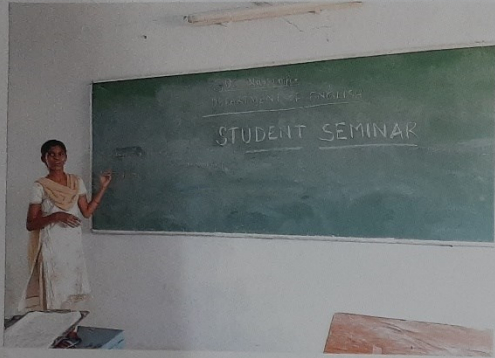 DEPARTMENT OF ENGLISH
STUDENT SEMINAR